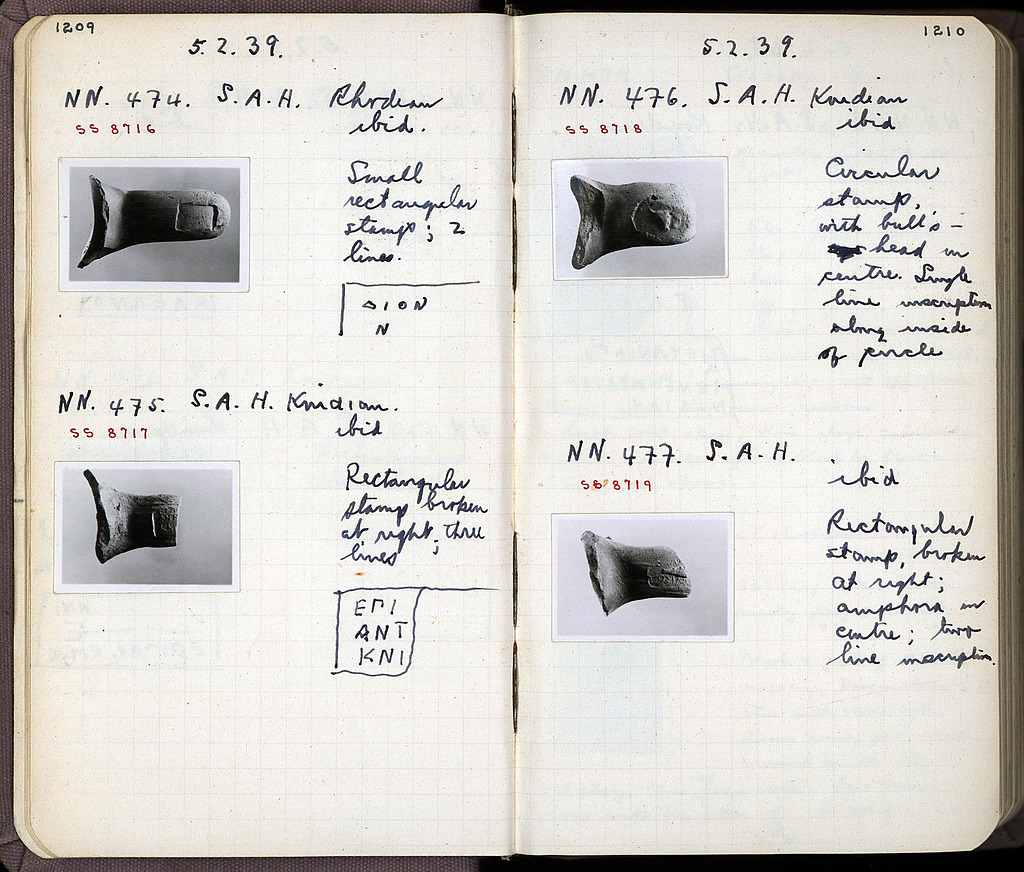 1209
5.2.39.
NN. 474. S.A.H. Rhodian
ibid.
SS 8716
Small
rectangular
stamp; 2
lines.
ΔION
N
NN. 475. S.A.H. Knidian.
ibid
SS 8717
Rectangular
stamp broken
at right; three
lines
ΕΠΙ
ΑΝΤ
ΚΝΙ
1210
5.2.39.
NN. 476. S.A.H. Knidian
ibid
SS 8718
Circular
stamp,
with bull's-
head in
centre. Single
line inscription
along inside
of circle
NN. 477. S.A.H.
ibid
SS 8719
Rectangular
stamp, broken
at right;
amphora in
centre; two
line inscription.